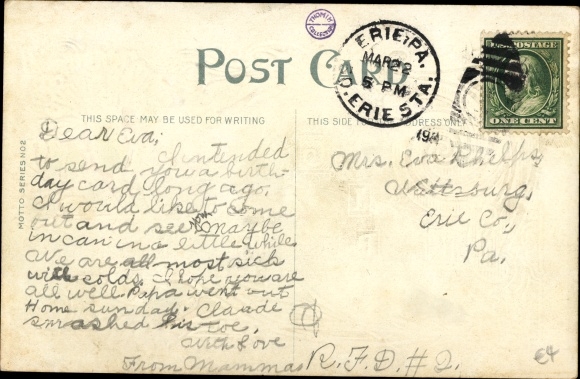 THOMIN
COLLECTION
ERIE, PA.
MAR 22
5 PM
O. ERIE STA.
191
U.S. POSTAGE
ONE CENT
POST CARD
THIS SPACE MAY BE USED FOR WRITING
THIS SIDE FOR ADDRESS ONLY
MOTTO SERIES NO 2
Dear Eva;
I intended
to send you a birth-
day card long ago.
I would like to come
out and see you maybe
in can in a little while
we are all most sick
with colds. I hope you are
all well Papa went out
Home sunday. Claude
smashed his toe.
with Love
From Mamma
Mrs. Eva Phelps,
Wattsburg,
Erie Co.,
Pa.
R.F.D. #2.
E4